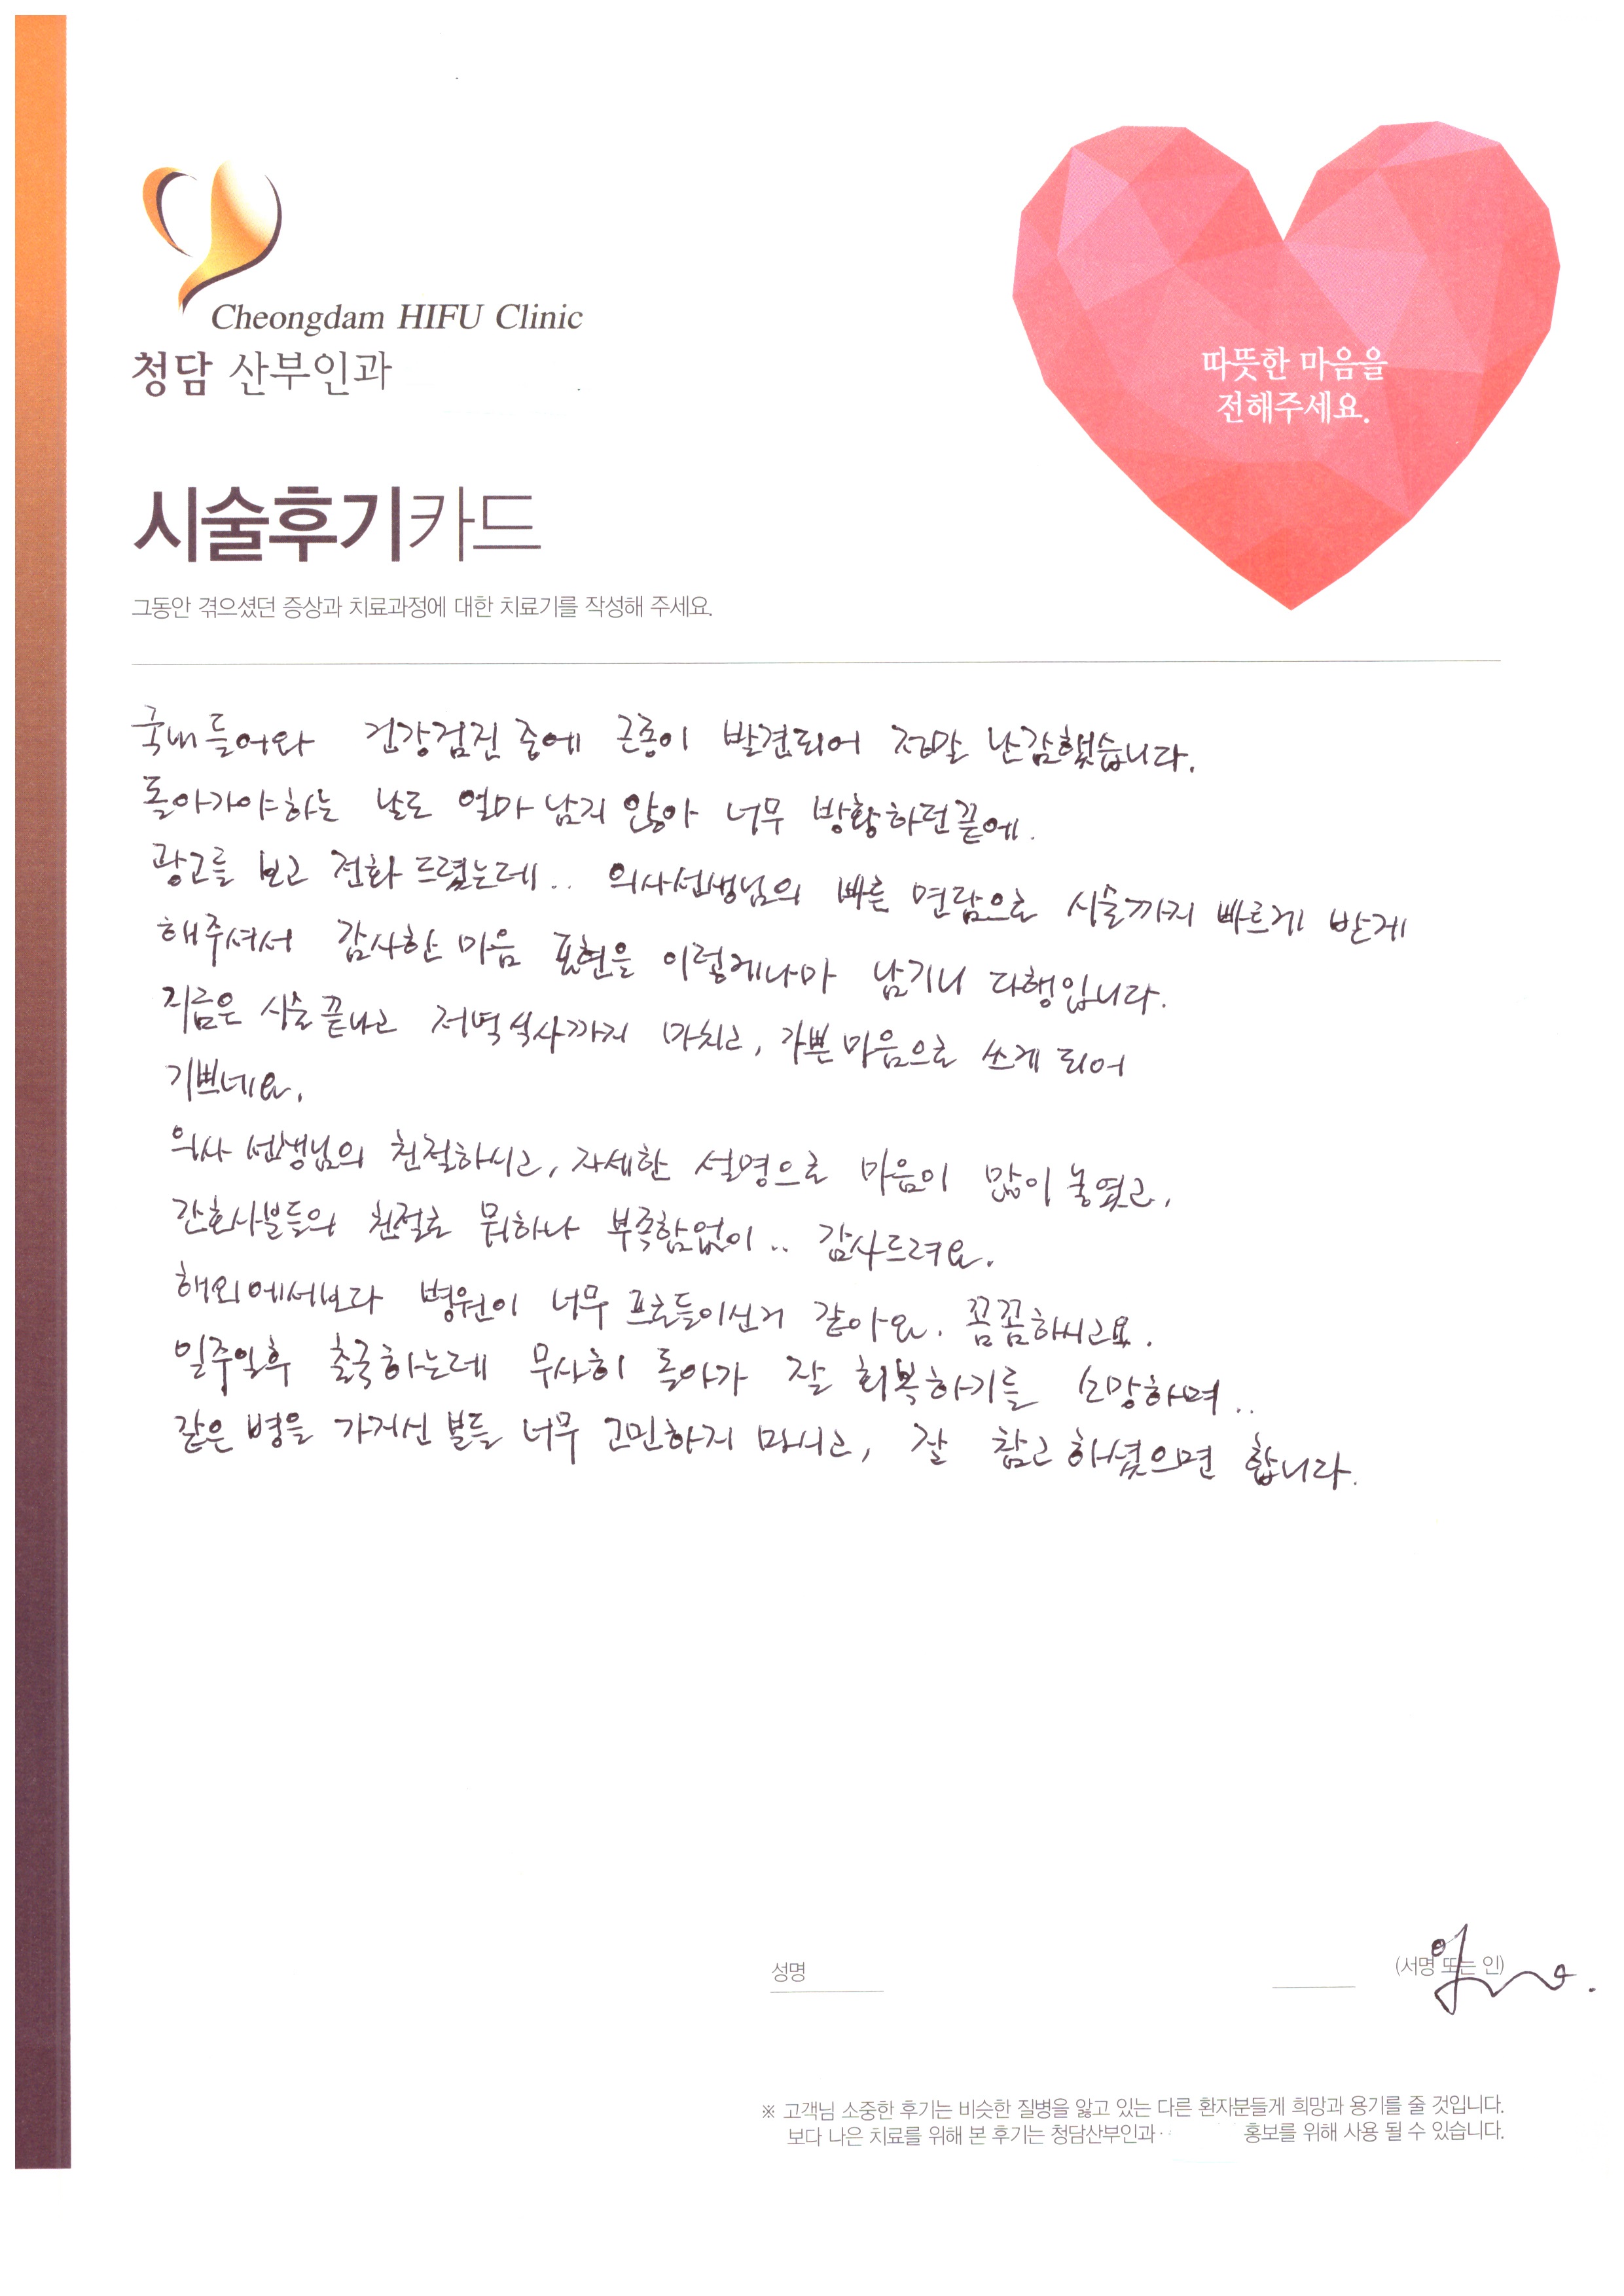 Cheongdam HIFU Clinic
청담 산부인과
따뜻한 마음을
전해주세요.
시술후기카드
그동안 겪으셨던 증상과 치료과정에 대한 치료기를 작성해 주세요.
국내 들어와 건강검진 중에 근종이 발견되어 정말 난감했습니다.
돌아가야하는 날도 얼마 남지 않아 너무 방황하던 끝에.
광고를 보고 전화 드렸는데.. 의사선생님의 빠른 면담으로 시술까지 빠르게 받게
해주셔서 감사한 마음 표현을 이렇게나마 남기니 다행입니다.
지금은 시술 끝나고 저녁식사까지 마치고, 가쁜 마음으로 쓰게 되어
기쁘네요.
의사 선생님의 친절하시고, 자세한 설명으로 마음이 많이 놓였고,
간호사분들의 친절로 뭐하나 부족함없이.. 감사드려요.
해외에서보다 병원이 너무 프로들이신거 같아요. 꼼꼼하시고요.
일주일후 출국하는데 무사히 돌아가 잘 회복하기를 소망하며..
같은 병을 가지신 분들 너무 고민하지 마시고, 잘 참고 하셨으면 합니다.
성명
(서명 또는 인)
※ 고객님 소중한 후기는 비슷한 질병을 앓고 있는 다른 환자분들게 희망과 용기를 줄 것입니다.
보다 나은 치료를 위해 본 후기는 청담산부인과 홍보를 위해 사용 될 수 있습니다.